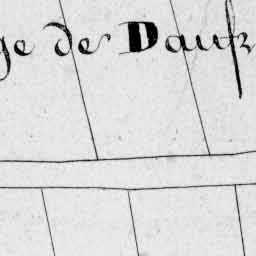 ge de Dauf